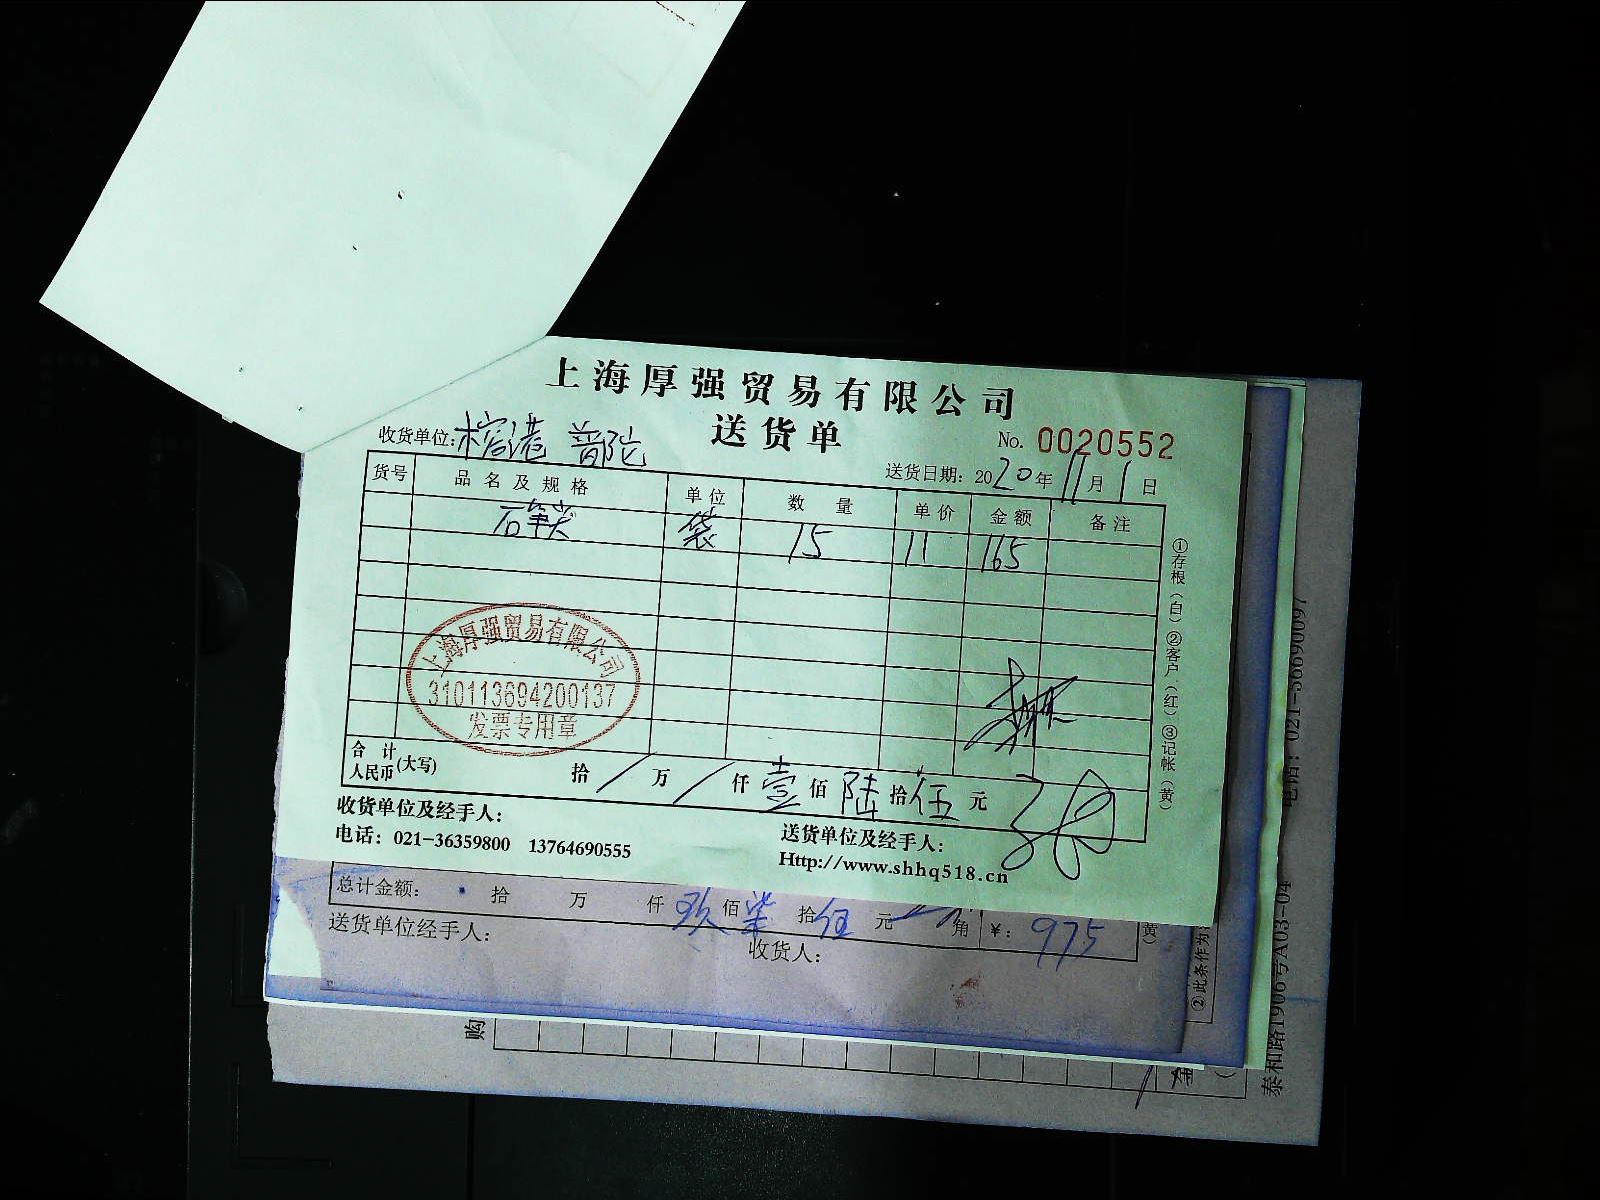 上海厚强贸易有限公司
送货单
No. 0020552
收货单位:榕港 普陀
送货日期: 2020年11月1日
货号 品名及规格 单位 数量 单价 金额 备注
石笔尖 袋 15 11 165
①存根(白)②客户(红)③记帐(黄)
上海厚强贸易有限公司
310113694200137
发票专用章
合计人民币(大写) 拾/万/仟壹佰陆拾伍元
收货单位及经手人:
电话: 021-36359800 13764690555
送货单位及经手人:
Http://www.shhq518.cn
总计金额: 拾 万 仟玖佰柒拾伍元 角 ¥: 975
黄)
送货单位经手人:
收货人:
②此条作为
购
泰和路1906号A03-04
电话: 021-56690097